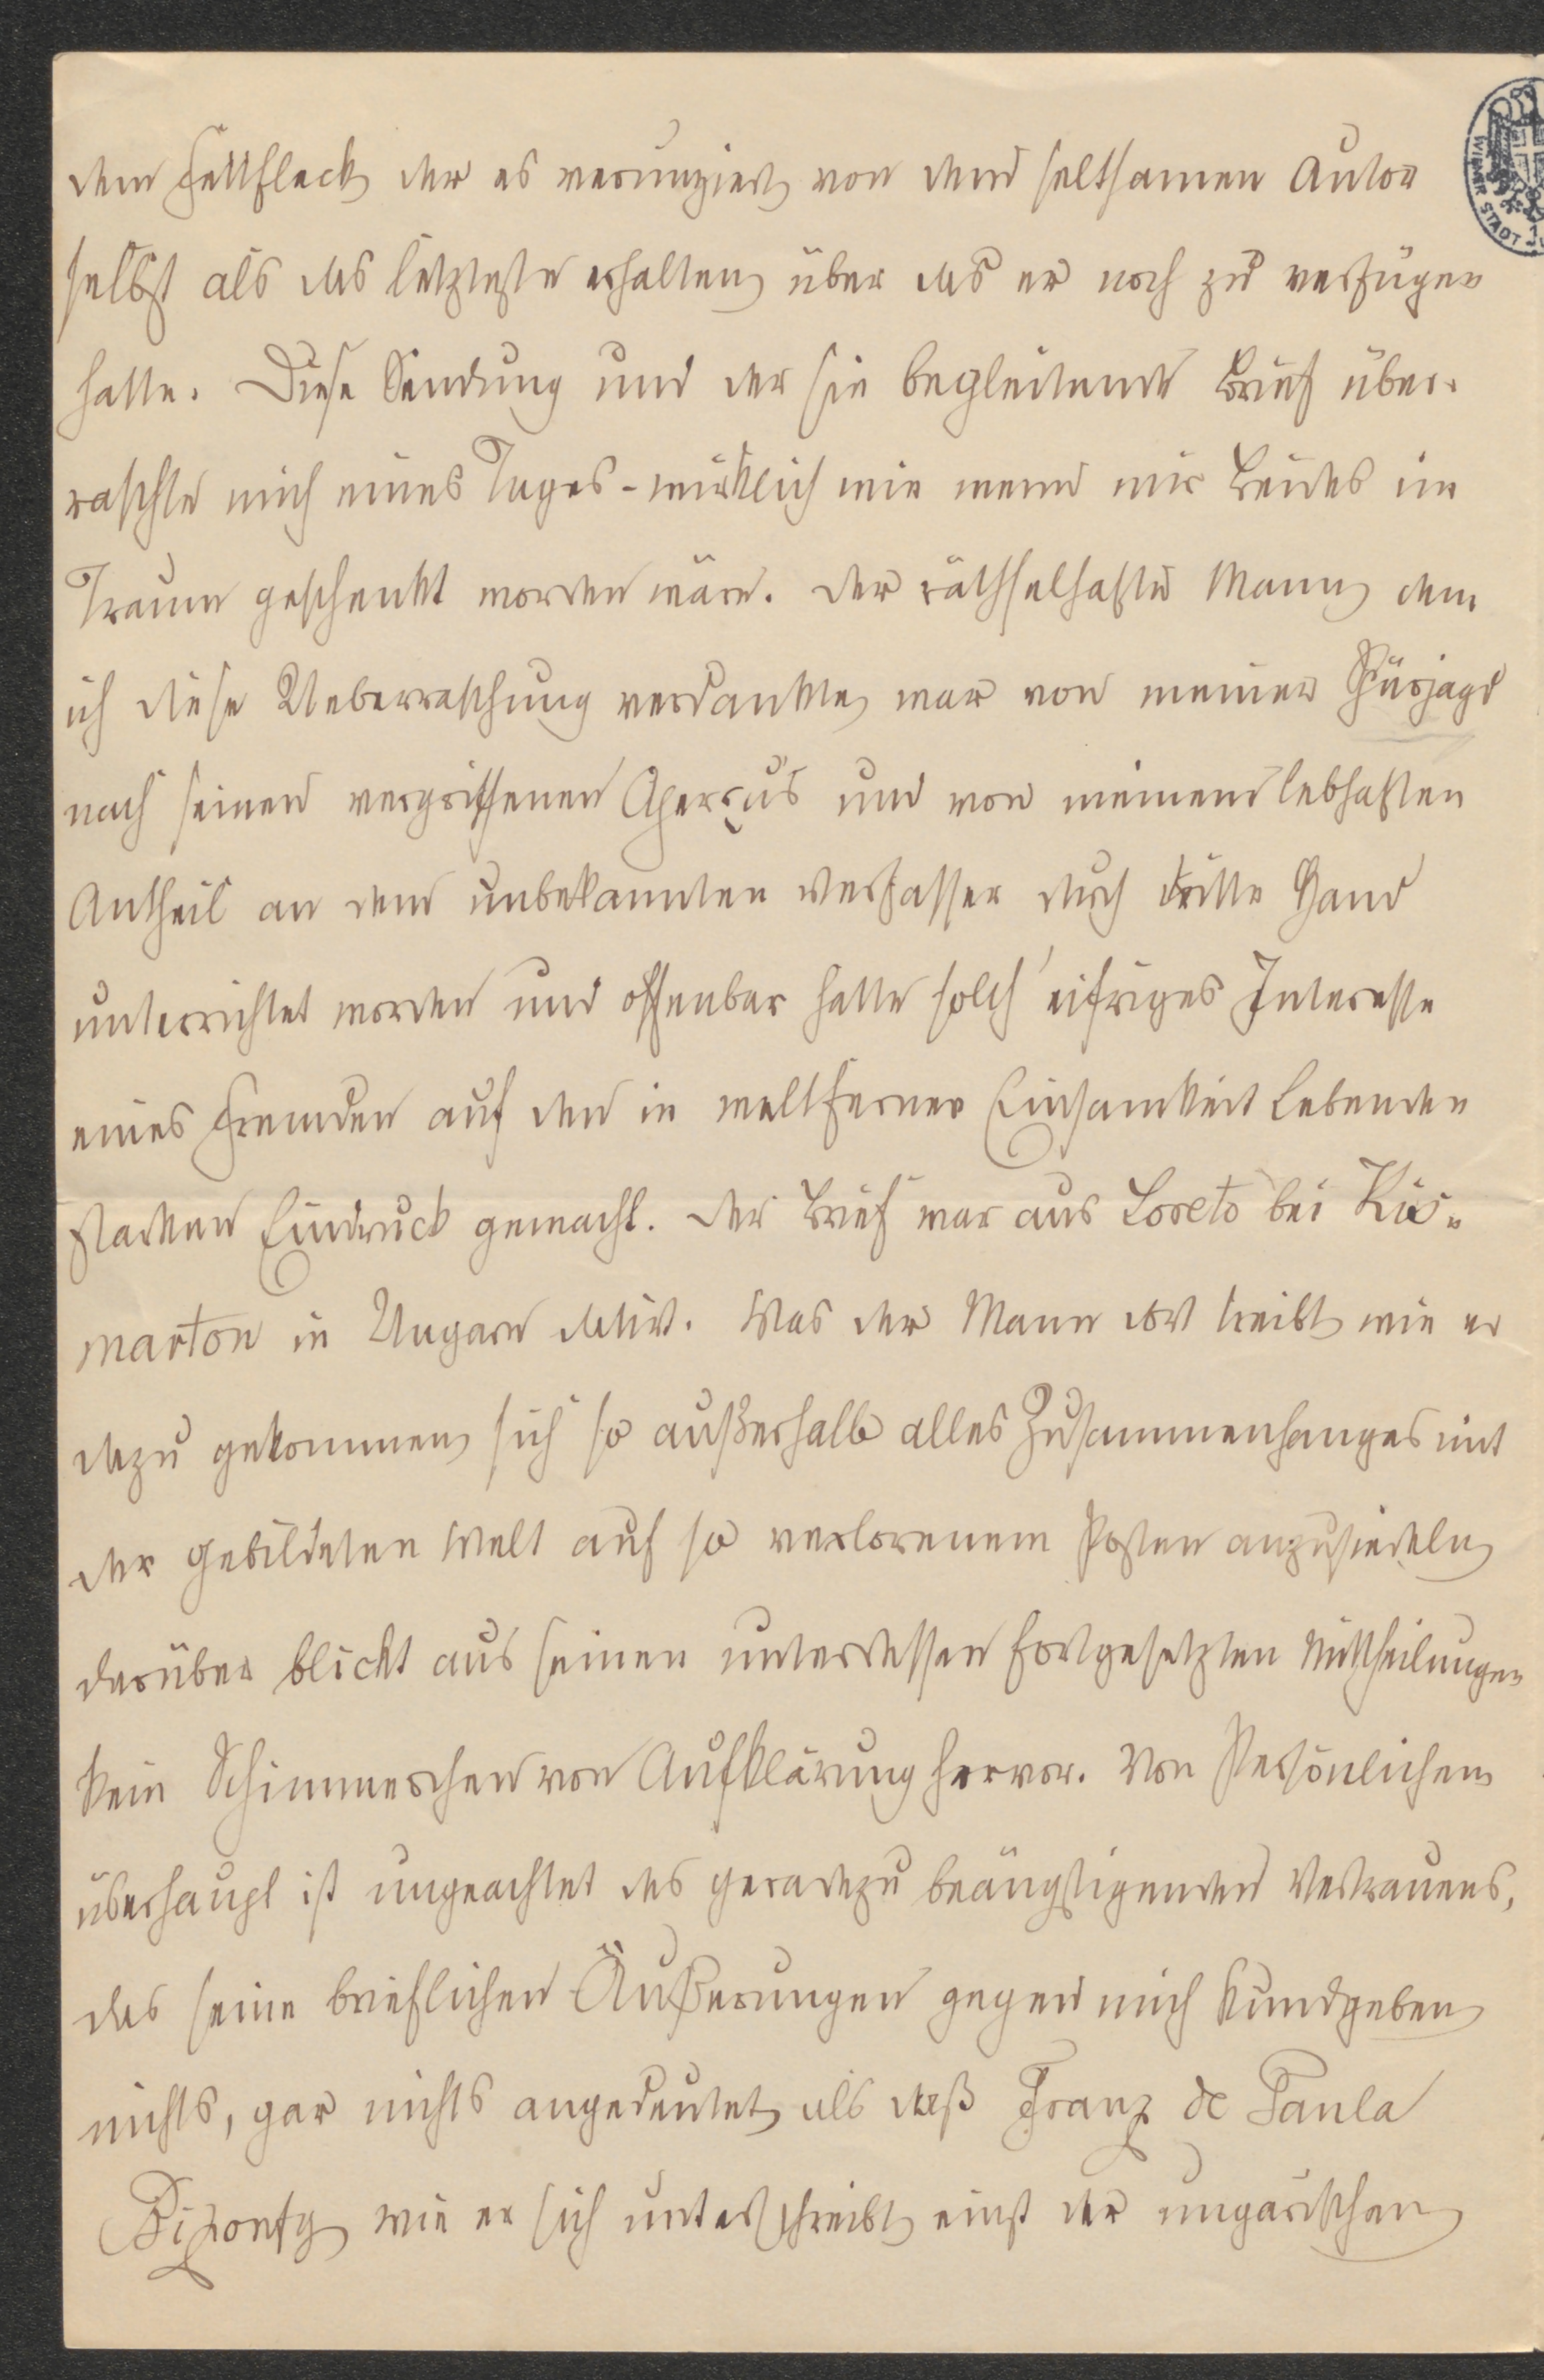 dem Fettfleck, der es verunziert, von dem seltsamen Autor
selbst als das letzteste erhalten, über das er noch zu verfügen
hatte. Diese Sendung und der sie begleitende Brief über-
raschte mich eines Tages - wirklich wie wenn mir Beides im
Traum geschenkt worden wäre. Der räthselhafte Mann, dem
ich diese Ueberraschung verdankte, war von meiner Spürjagd
nach seinen vergriffenen Aperçus und von meinem lebhaften
Antheil an dem unbekannten Verfasser durch dritte Hand
unterrichtet worden und offenbar hatte solch' eifriges Interesse
eines Fremden auf den in weltferner Einsamkeit Lebenden
starken Eindruck gemacht. Der Brief war aus Loreto bei Kis-
marton in Ungarn datirt. Was der Mann dort treibt, wie er
dazu gekommen, sich so außerhalb alles Zusammenhanges mit
der gebildeten Welt auf so verlorenem Posten anzusiedeln,
darüber blickt aus seinen unterdessen fortgesetzten Mittheilungen
kein Schimmerchen von Aufklärung hervor. Von Persönlichem
überhaupt ist ungeachtet des geradezu beängstigenden Vertrauens,
das seine brieflichen Äußerungen gegen mich kundgeben,
nichts, gar nichts angedeutet, als daß Franz de Paula
wie er sich unterschreibt, einst der ungarischen
WIENER STADT